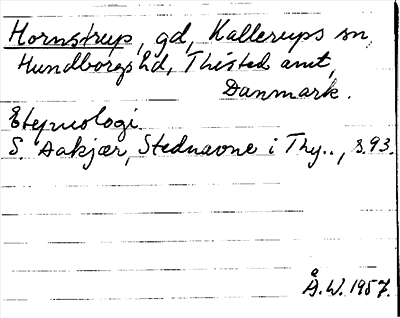 Hornstrup, gd, Kallerups sn,
Hundborgs hd, Thisted amt,
Danmark.
Etymologi.
S. Aakjær, Stednavne i Thy.., s.93.
Å.W. 1957.